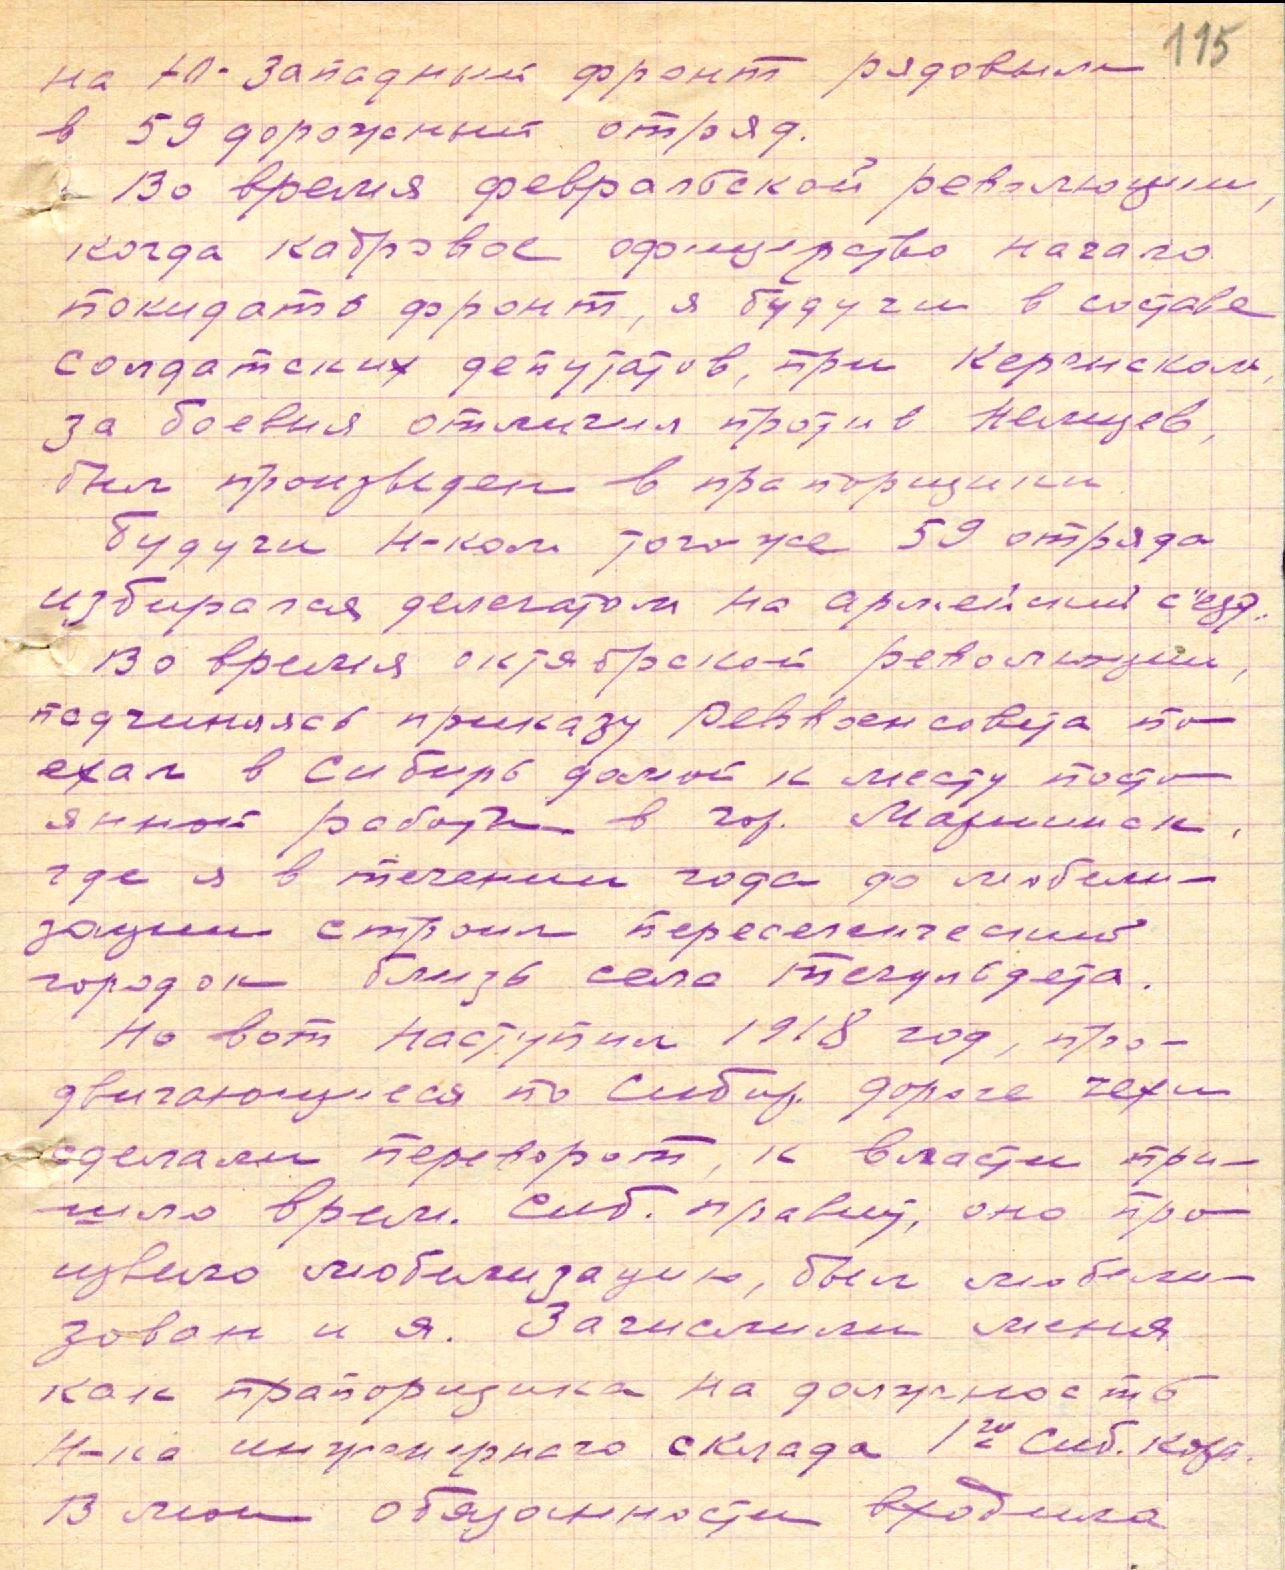 115
на Ю-Западный фронт рядовым
в 59 дорожный отряд.
Во время февральской революции,
когда кадровое офицерство начало
покидать фронт, я будучи в составе
солдатских депутатов, при Керенском,
за боевыя отличия против немцев,
был произведен в прапорщики
Будучи н-ком того же 59 отряда
избирался делегатом на армейский с"езд.
Во время октябрской революции,
подчиняясь приказу Реввоенсовета по-
ехал в Сибирь домой к месту посто-
янной работы в гор. Мариинск,
где я в течении года до мобили-
зации строил переселенческий
городок близь села Тегульдета.
Но вот наступил 1918 год, про-
двигающиеся по Сибир. дороге чехи
сделали переворот, к власти при-
шло врем. Сиб. правит, оно про-
извело мобилизацию, был мобили-
зован и я. Зачислили меня
как прапорщика на должность
н-ка инженерного склада 1го Сиб. корп.
В мои обязанности входила